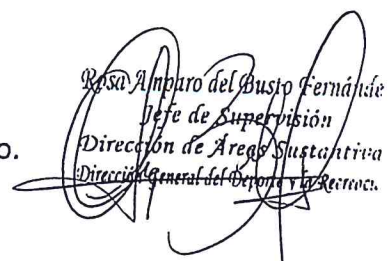 Rosa Amparo del Busto Fernánde
Jefe de Supervisión
Dirección de Áreas Sustantiva
o.
Dirección General del Deporte y la Recreaci